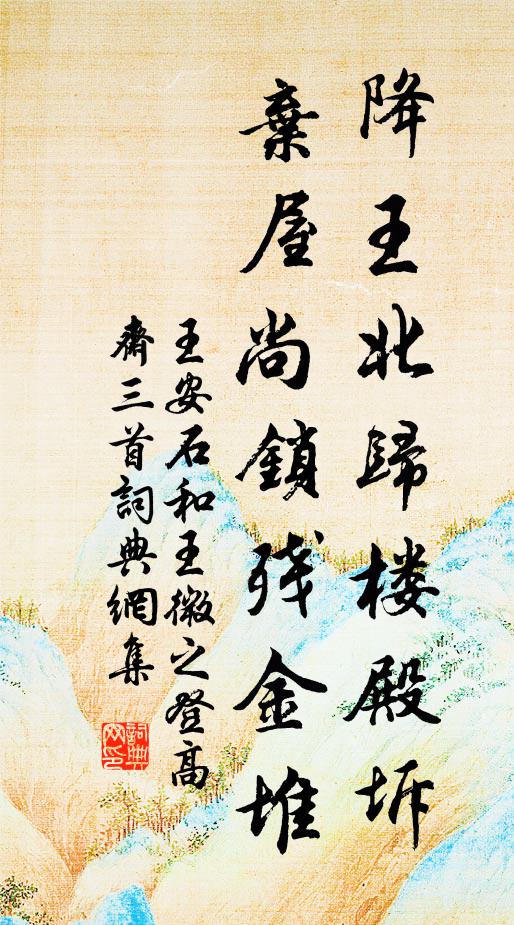 降王北歸楼殿坼
棄屋尚鎖残金堆
王安石和王微之登高
齋三首詞典網集
詞典
网印